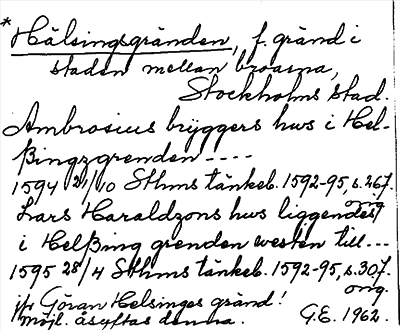 * Hälsingsgränden, f. gränd i
staden mellan broarna,
Stockholms stad.
Ambrosius bryggers hws i Hel-
ßingzgrenden ----
1594 21/10 Sthms tänkeb. 1592-95, s. 267.
orig.
Lars Haraldzons hws liggendes
i Helßing grenden westen till ---
1595 28/4 Sthms tänkeb. 1592-95, s. 307.
orig.
jfr Göran Helsinges gränd!
möjl. åsyftas denna. G.E. 1962.